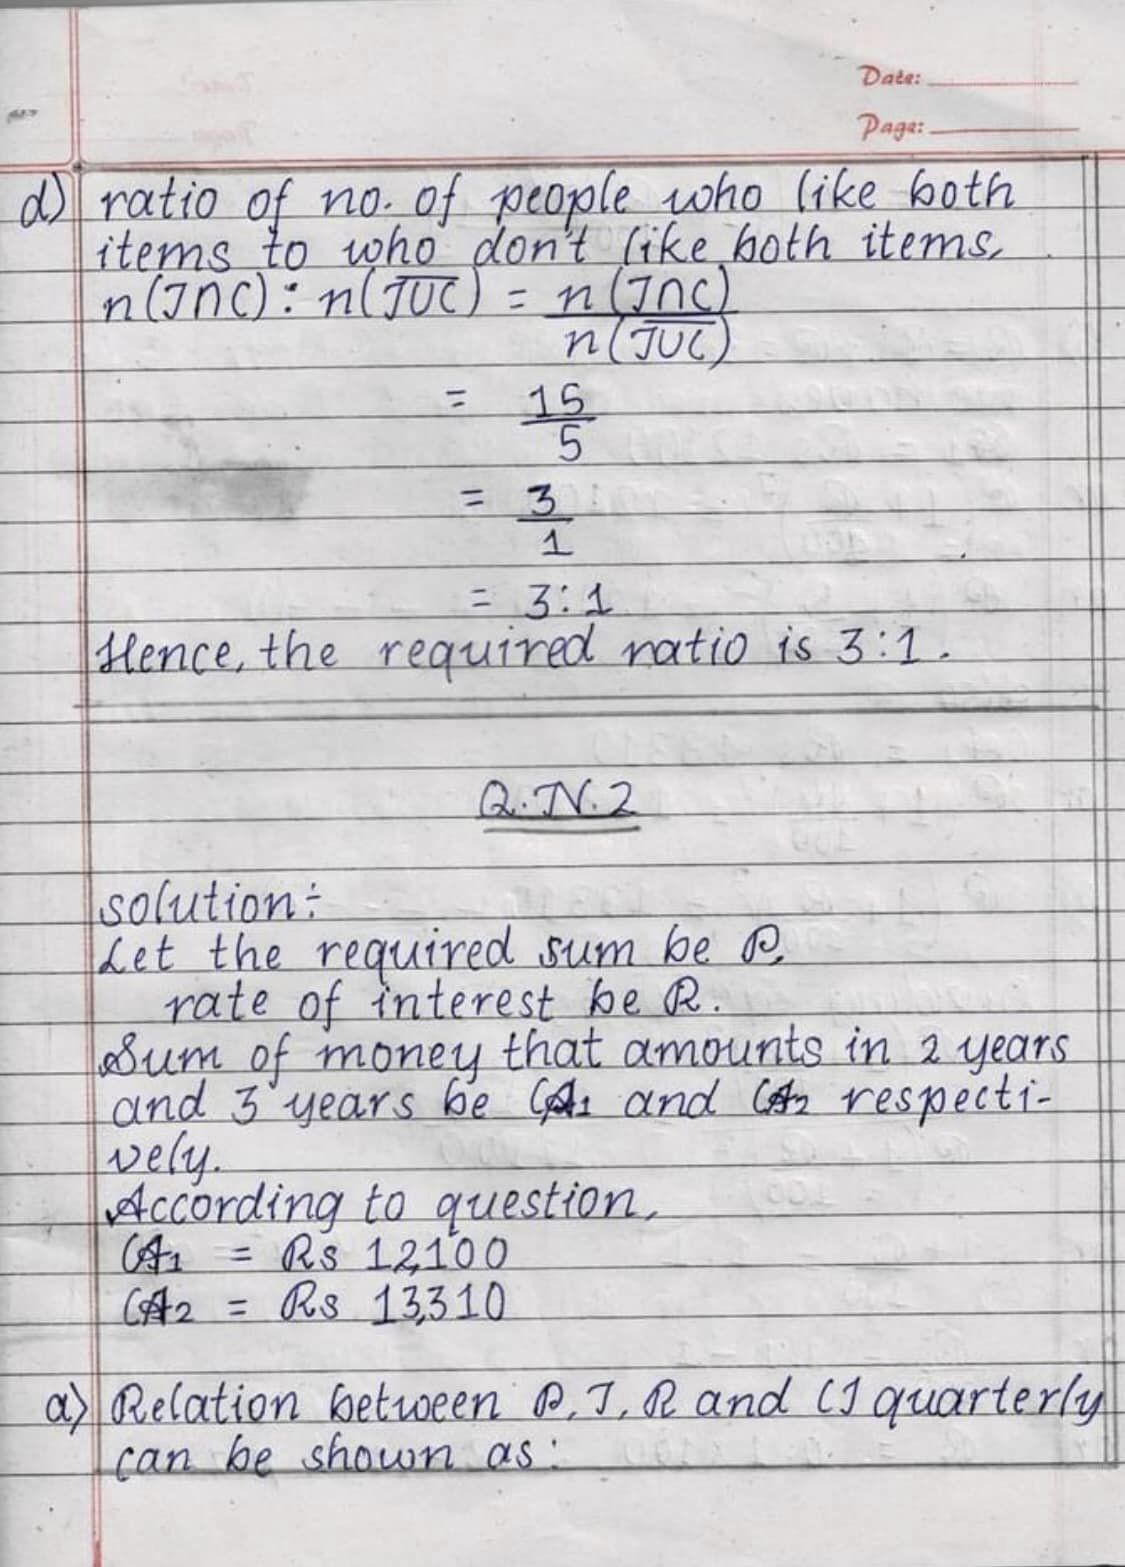 Date:
Page:
d) ratio of no. of people who like both
items to who don't like both items,
n(J∩C) : n(J̅U̅C̅) = n(J∩C)
n(J̅U̅C̅)
= 15
5
= 3
1
= 3:1
Hence, the required ratio is 3:1.
Q.N.2
solution:
Let the required sum be P,
rate of interest be R.
Sum of money that amounts in 2 years
and 3 years be CA1 and CA2 respecti-
vely.
According to question,
CA1 = Rs 12,100
CA2 = Rs 13,310
a) Relation between P, T, R and CI quarterly
can be shown as: